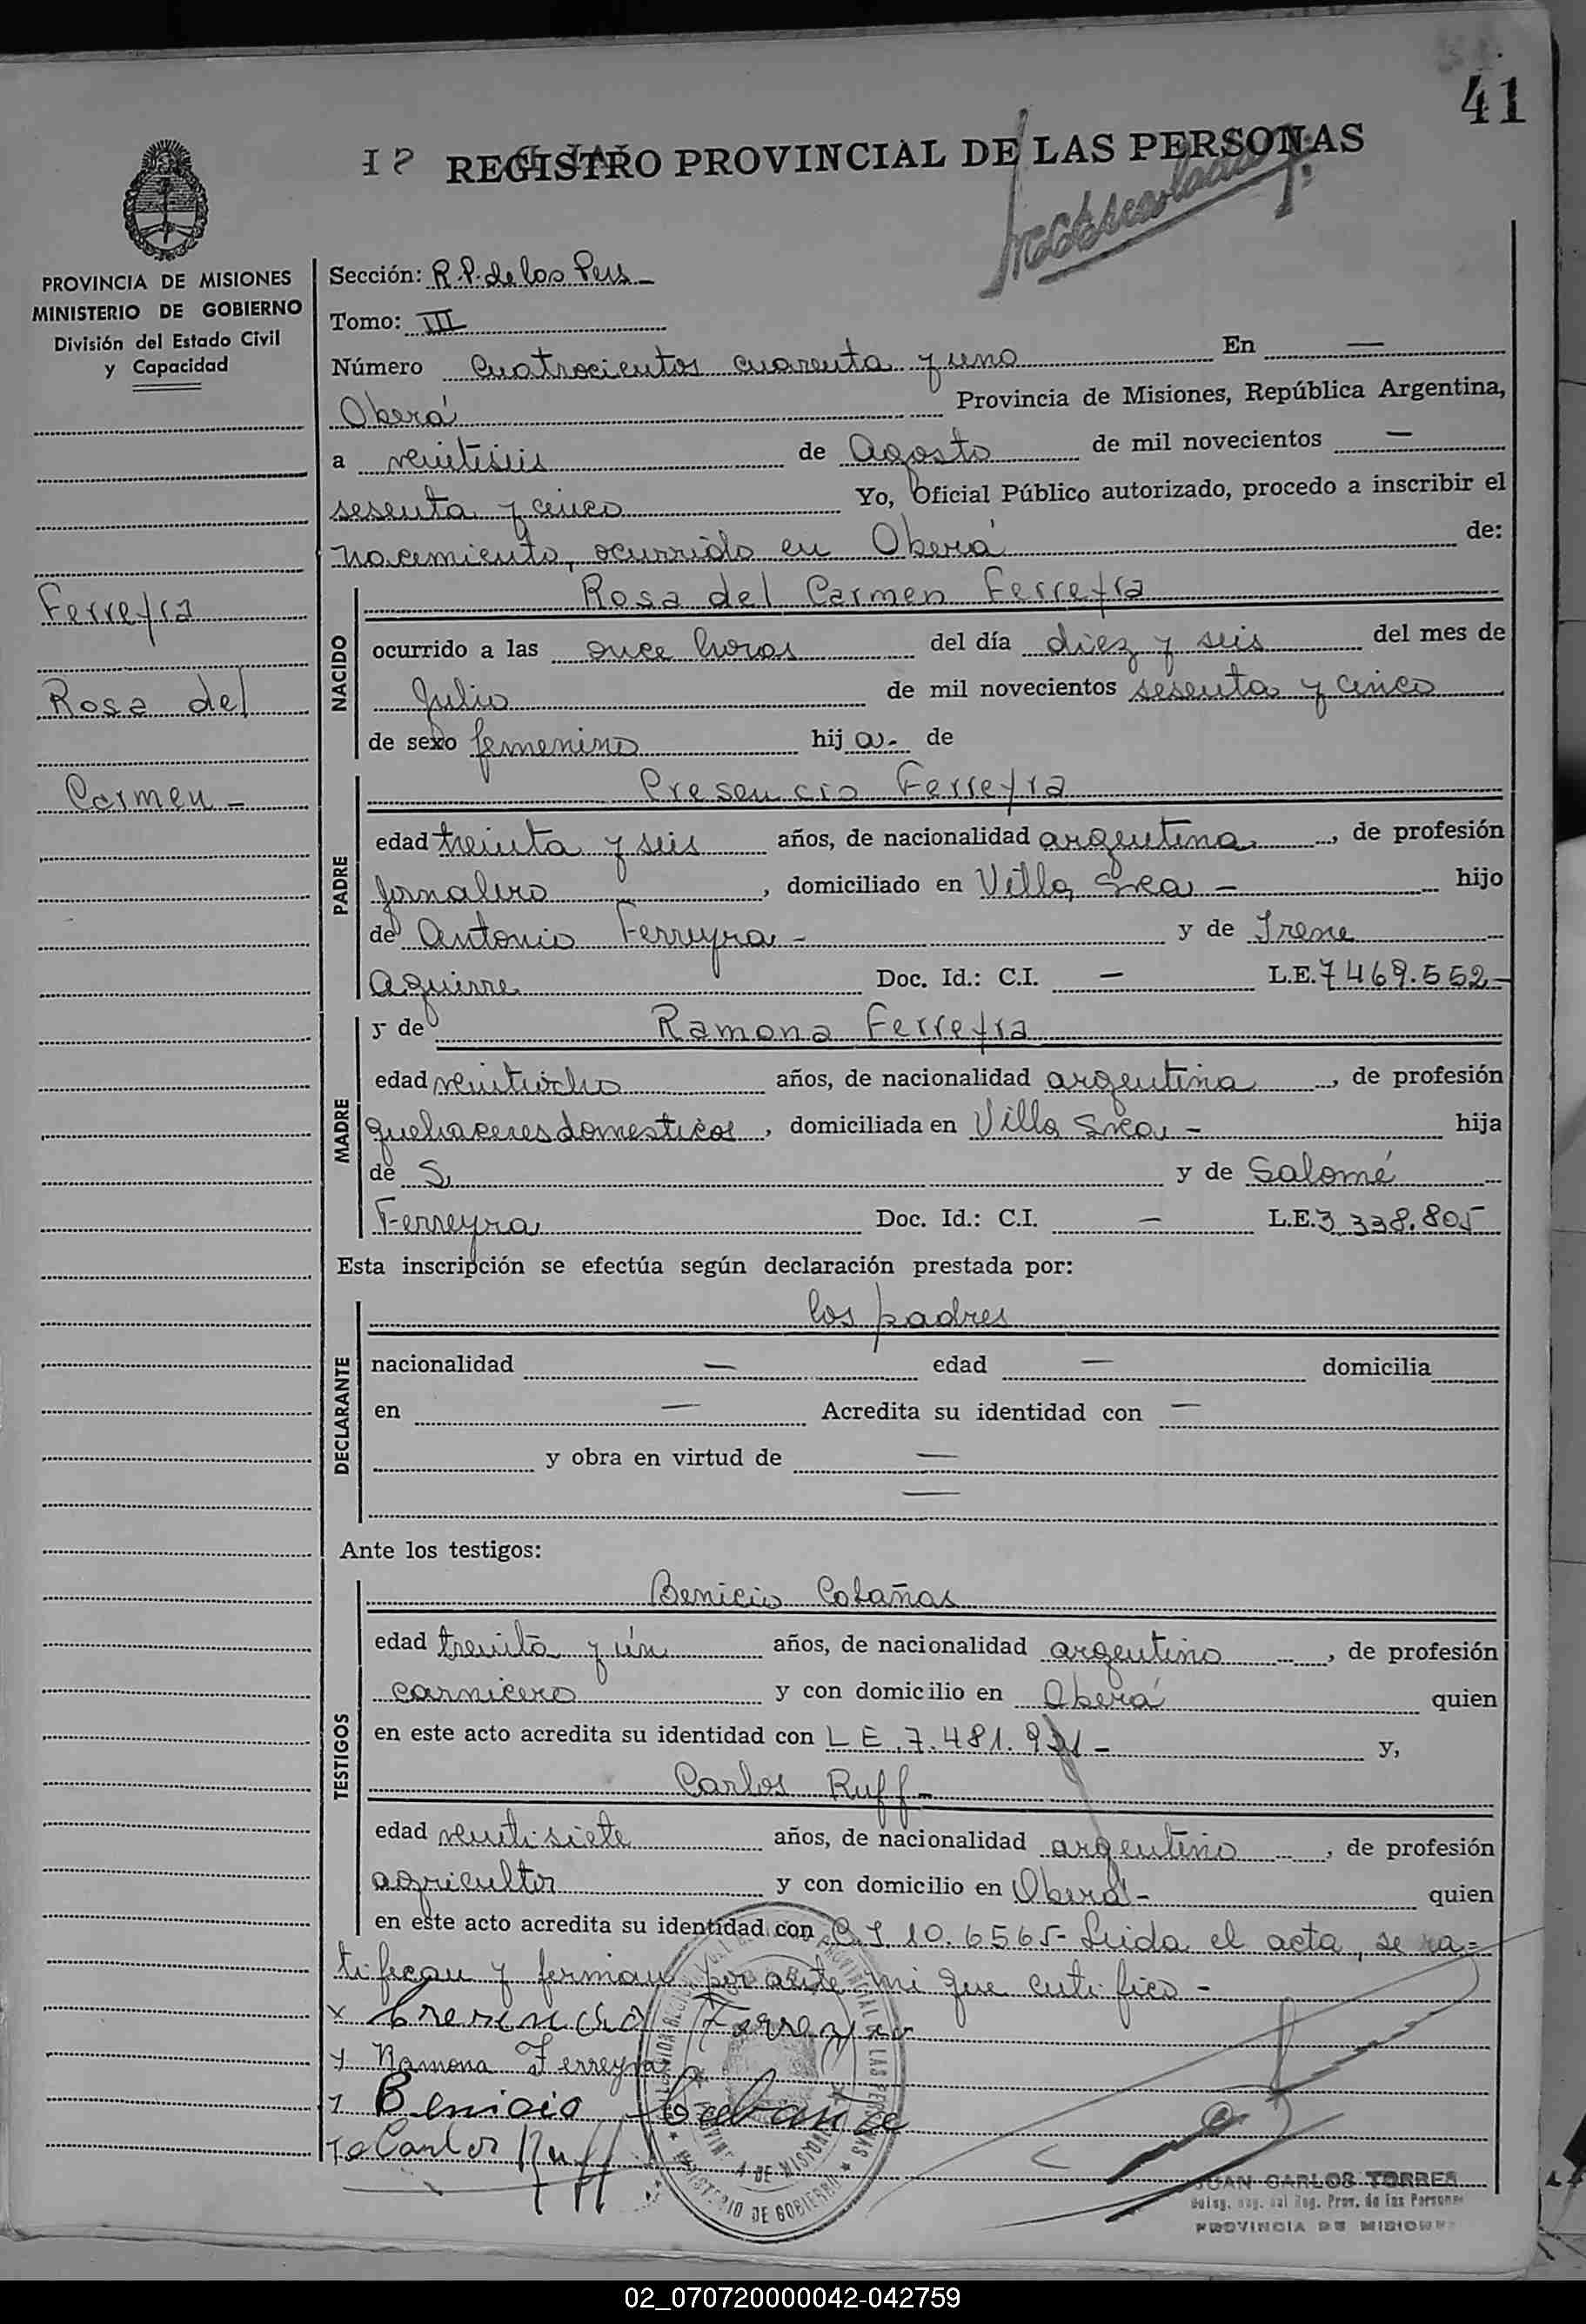 41
REGISTRO PROVINCIAL DE LAS PERSONAS
PROVINCIA DE MISIONES
MINISTERIO DE GOBIERNO
División del Estado Civil
y Capacidad
Ferreyra
Rosa del
Carmen -
Sección: R.P. de los Pers -
Tomo: III
Número Cuatrocientos cuarenta y uno En —
Oberá Provincia de Misiones, República Argentina,
a veintiseis de Agosto de mil novecientos —
sesenta y cinco Yo, Oficial Público autorizado, procedo a inscribir el
nacemiento, ocurrido en Oberá de:
NACIDO
Rosa del Carmen Ferreyra
ocurrido a las once horas del día diez y seis del mes de
Julio de mil novecientos sesenta y cinco
de sexo femenino hij a- de
PADRE
Cresencio Ferreyra
edad treinta y seis años, de nacionalidad argentina, de profesión
jornalero, domiciliado en Villa Svea - hijo
de Antonio Ferreyra - y de Irene
Aguirre Doc. Id.: C.I. — L.E. 7469.552-
MADRE
y de Ramona Ferreyra
edad veintiocho años, de nacionalidad argentina, de profesión
quehaceres domesticos, domiciliada en Villa Svea - hija
de S, y de Salomé
Ferreyra Doc. Id.: C.I. — L.E. 3.338.805
Esta inscripción se efectúa según declaración prestada por:
DECLARANTE
los padres
nacionalidad — edad — domicilia
en — Acredita su identidad con —
y obra en virtud de —
—
Ante los testigos:
TESTIGOS
Benicio Cabañas
edad treinta y ún años, de nacionalidad argentino, de profesión
carnicero y con domicilio en Oberá quien
en este acto acredita su identidad con L E. 7.481. y,
Carlos Ruff -
edad veintisiete años, de nacionalidad argentino, de profesión
agricultor y con domicilio en Oberá - quien
en este acto acredita su identidad con C.I 10.6565- Leida el acta, se ra-
tifican y firman por ante mi que certifico -
x Cresencio Ferreyra
y Ramona Ferreyra
Benicio
Carlos Ruff
MINISTERIO DE GOBIERNO
JUAN CARLOS TORRES
Reg. Prov. de las Personas
PROVINCIA DE MISIONES
02_070720000042-042759